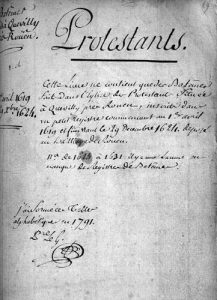 Batêmes
Quevilly
Rouen
avril 1619
1624.
Protestants.
Cette Liasse ne contient que des Batêmes
fait dans l'Eglise des Protestants située
à Quevilly près Rouen, inscrits dans
un petit Registre commençant au 1er avril
1619 et finissant le 29 décembre 1624, déposé
de Rouen.
de 1625 à 1631 ayant
manqué de Registre de Batême.
Table
alphabétique
en 1791.